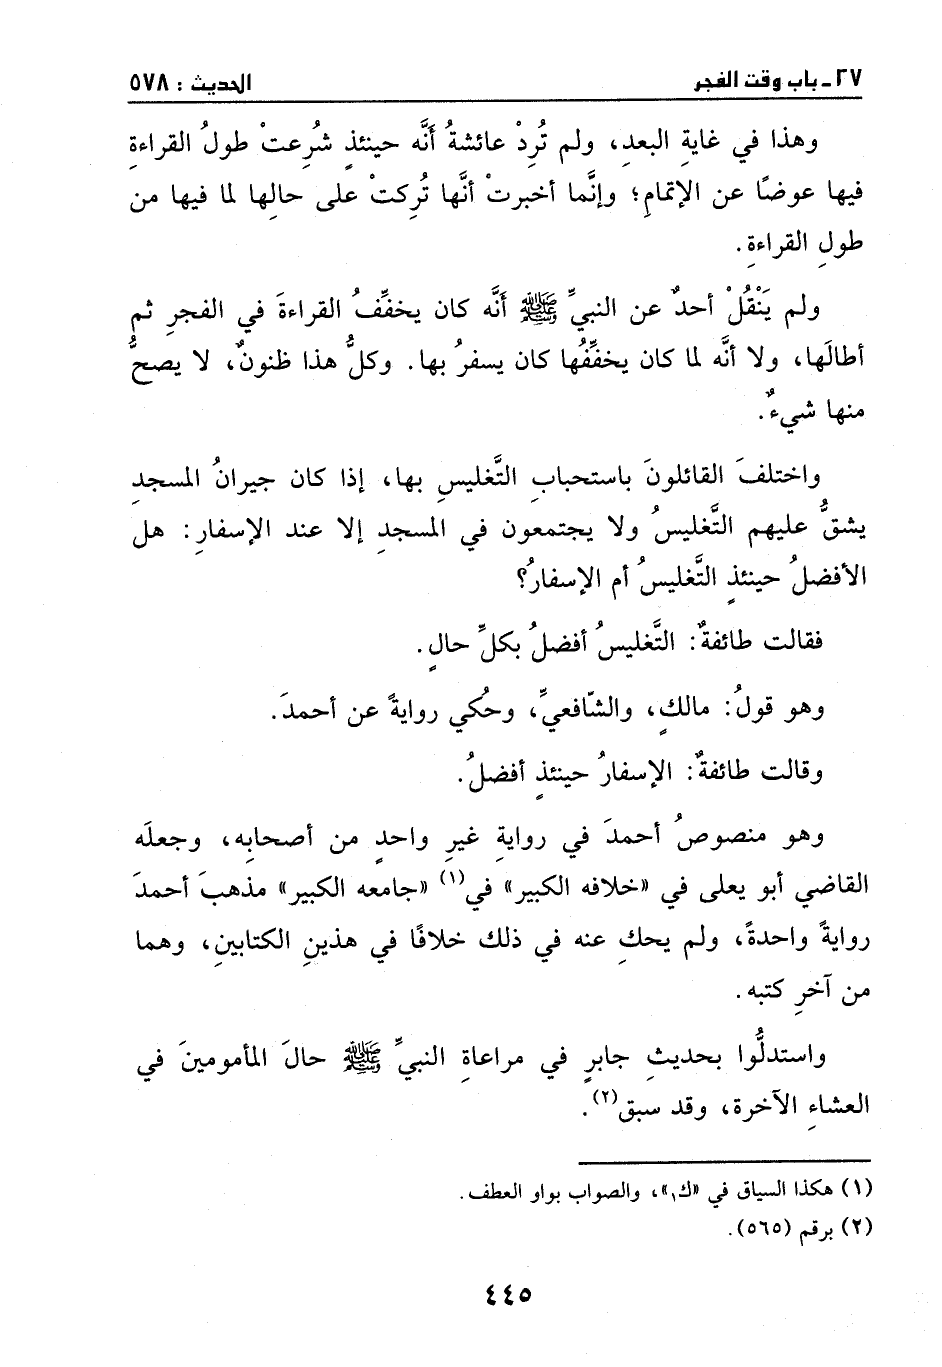 ٢٧ - باب وقت الفجر
الحديث : ٥٧٨
وهذا في غايةِ البعدِ، ولم تُرِدْ عائشةُ أَنَّه حينئذٍ شُرِعتْ طولُ القراءةِ
فيها عوضًا عن الإتمامِ؛ وإنَّما أخبرتْ أنَّها تُركتْ على حالِها لما فيها من
طولِ القراءةِ.
ولم يَنْقُلْ أحدٌ عن النبيِّ ﷺ أَنَّه كان يخفِّفُ القراءةَ في الفجرِ ثم
أطالَها، ولا أنَّه لما كان يخفِّفُها كان يسفرُ بها. وكلُّ هذا ظنونٌ، لا يصحُّ
منها شيءٌ.
واختلفَ القائلونَ باستحبابِ التَّغليسِ بها، إذا كان جيرانُ المسجدِ
يشقُّ عليهم التَّغليسُ ولا يجتمعون في المسجدِ إلا عند الإسفارِ: هل
الأفضلُ حينئذٍ التَّغليسُ أم الإسفارُ؟
فقالت طائفةٌ: التَّغليسُ أفضلُ بكلِّ حالٍ.
وهو قولُ: مالكٍ، والشّافعيِّ، وحُكي روايةً عن أحمدَ.
وقالت طائفةٌ: الإسفارُ حينئذٍ أفضلُ.
وهو منصوصُ أحمدَ في روايةِ غيرِ واحدٍ من أصحابِه، وجعلَه
القاضي أبو يعلى في «خلافه الكبير» في(١) «جامعه الكبير» مذهبَ أحمدَ
روايةً واحدةً، ولم يحكِ عنه في ذلك خلافًا في هذينِ الكتابينِ، وهما
من آخرِ كتبه.
واستدلُّوا بحديثِ جابرٍ في مراعاةِ النبيِّ ﷺ حالَ المأمومينَ في
العشاءِ الآخرة، وقد سبق(٢).
(١) هكذا السياق في «ك١»، والصواب بواو العطف.
(٢) برقم (٥٦٥).
٤٤٥